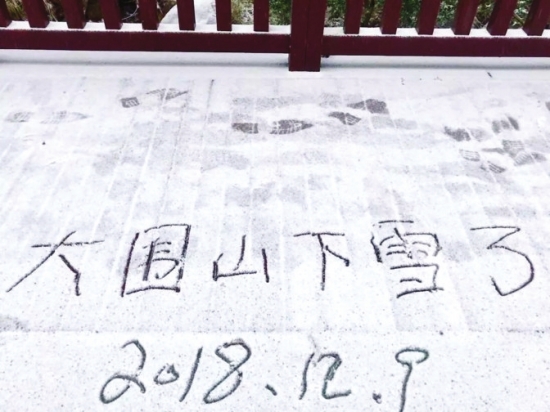 大围山下雪了
2018.12.9